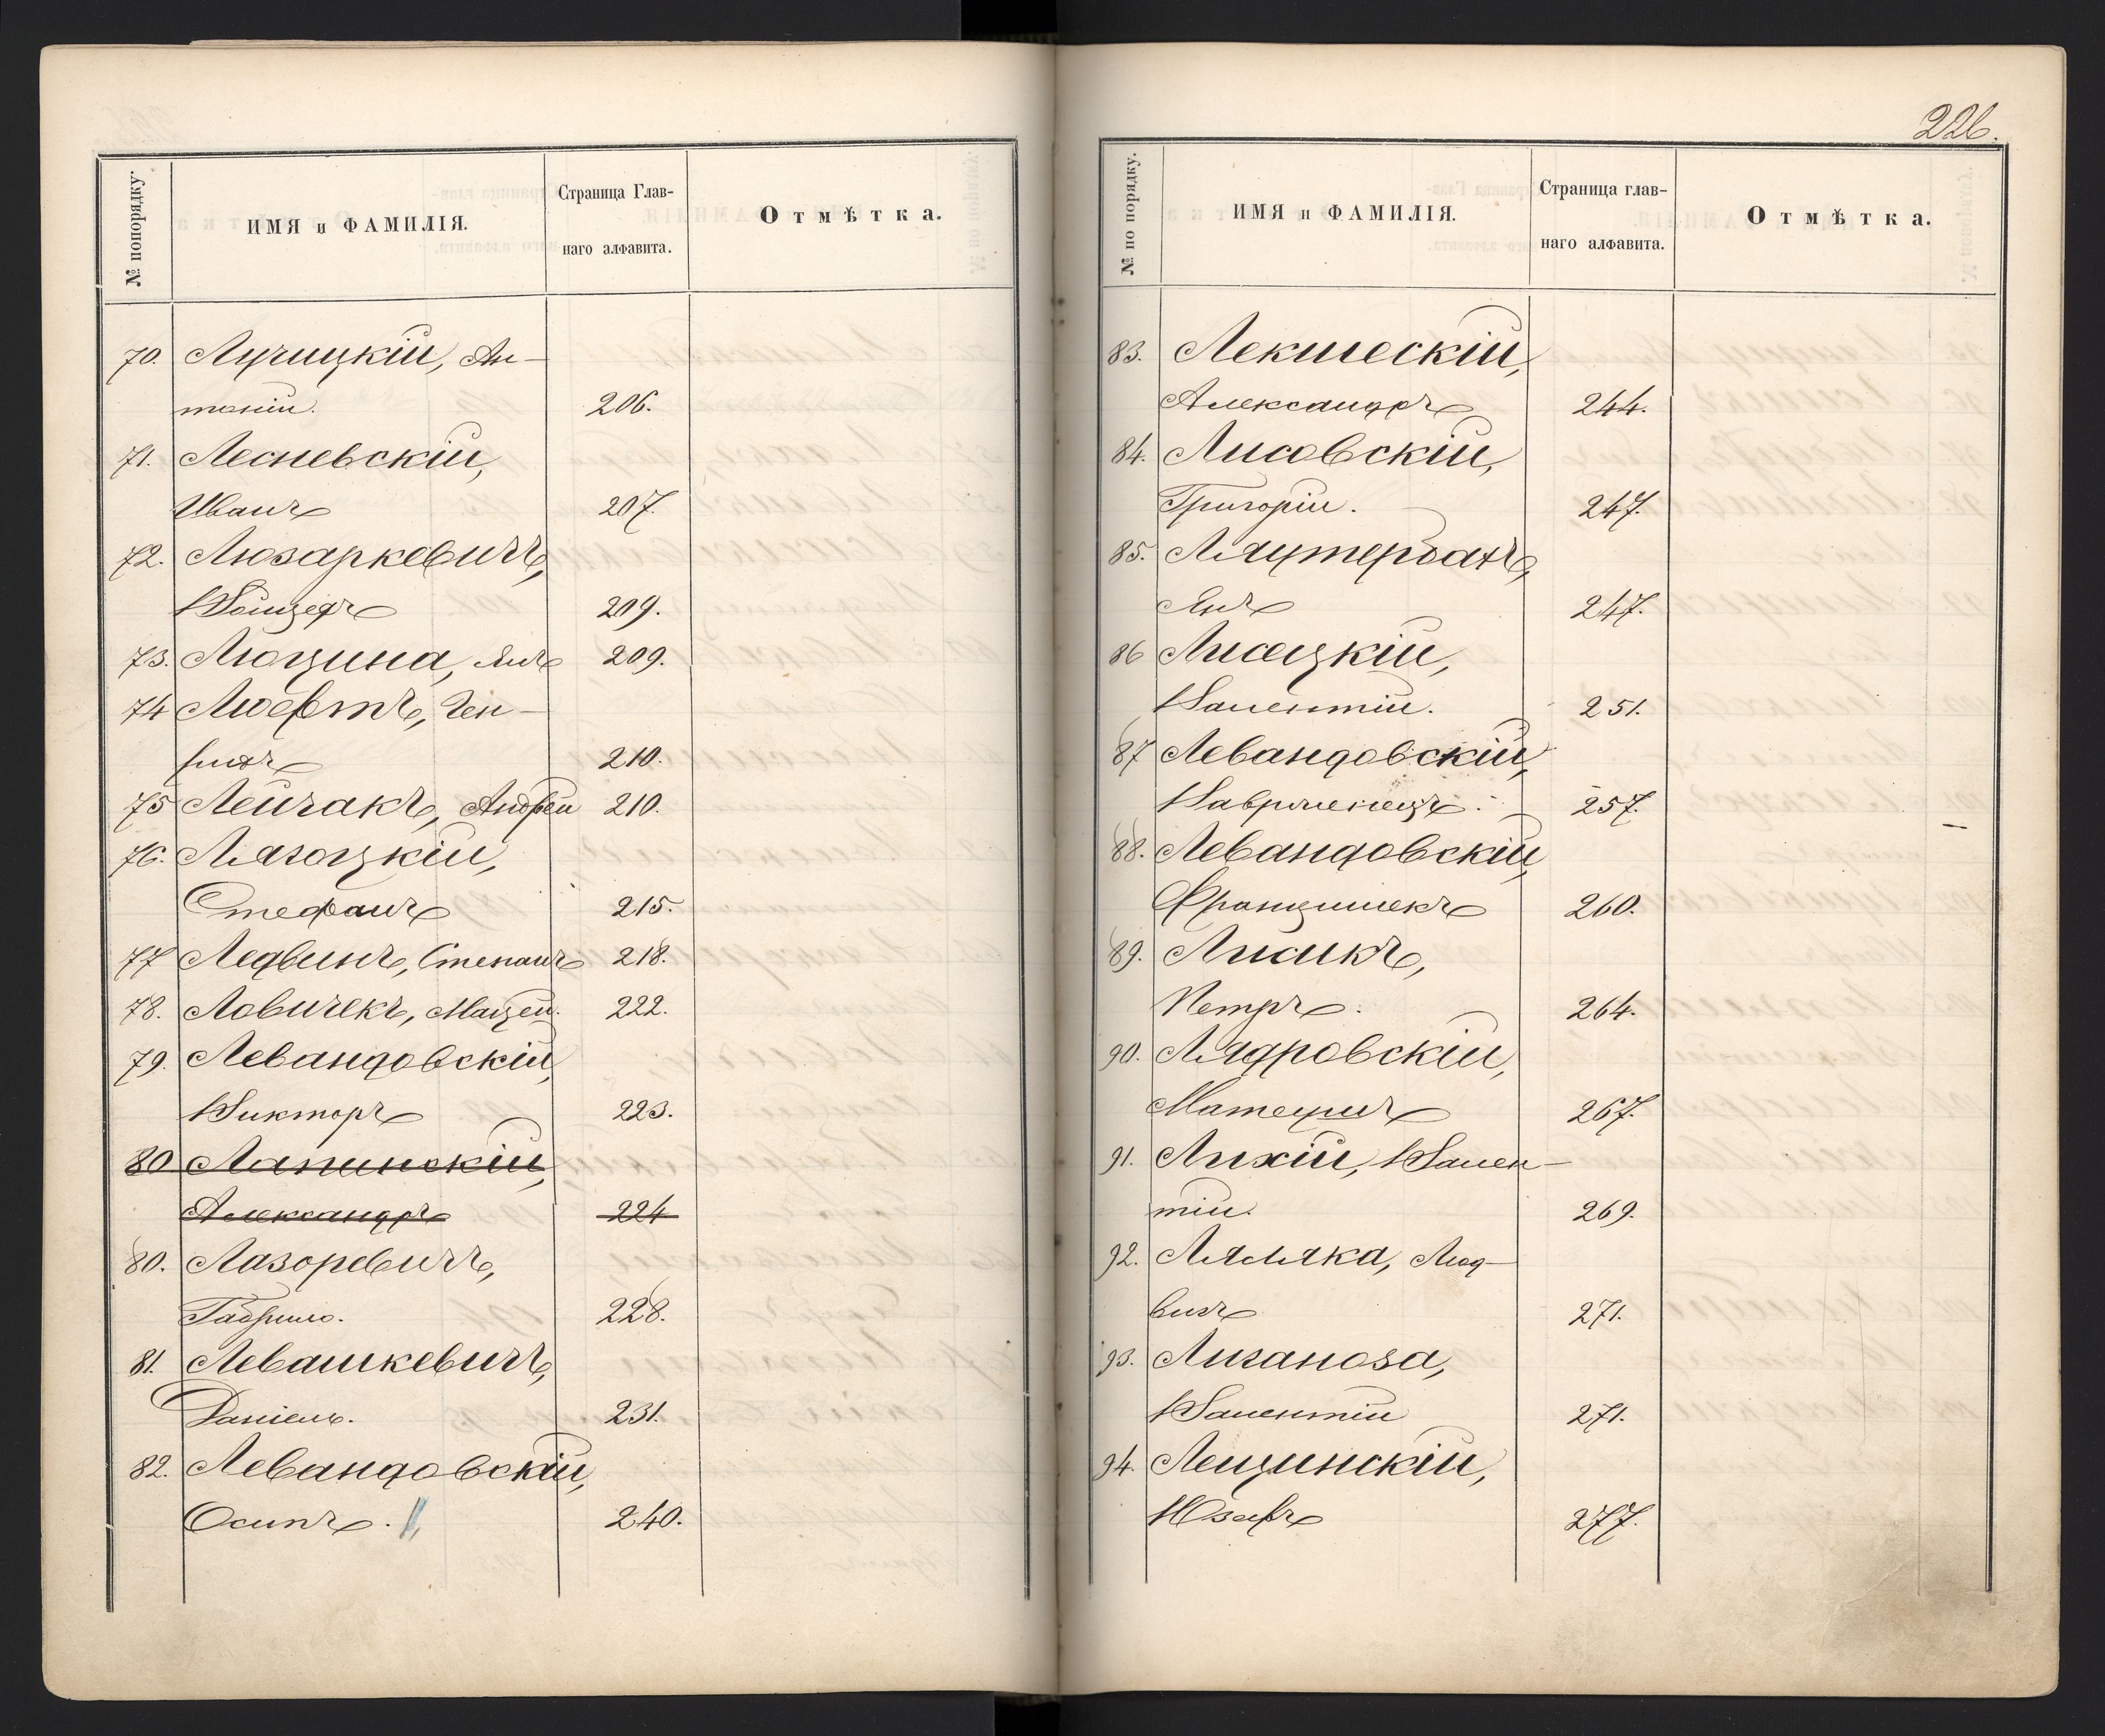 № попорядку.
ИМЯ и ФАМИЛІЯ.
Страница Глав-
наго алфавита.
Отмѣтка.
70. Лучицкій, Ан-
тоній. 206.
71. Лесневскій,
Иванъ 207.
72. Люзаркевичъ,
Войцехъ 209.
73. Люцина, Янъ 209.
74 Люфтъ, Ген-
рихъ 210.
75 Лейчакъ, Андрей 210.
76. Лягоцкій,
Стефанъ 215.
77 Ледвинъ, Степанъ 218.
78. Ловичекъ, Мацей. 222.
79. Левандовскій,
Викторъ 223.
80 Лапинскій,
Александръ 224
80. Лазоревичъ,
Габріель. 228.
81. Левашкевичъ,
Даніель. 231.
82. Левандовскій,
Осипъ. 240.
226.
№ по порядку.
ИМЯ и ФАМИЛІЯ.
Страница глав-
наго алфавита.
Отмѣтка.
83. Лекшескій,
Александръ 244.
84. Лисовскій,
Григорій. 247.
85.
Янъ 247.
86 Лисецкій,
Валентій. 251.
87 Левандовскій,
Лаврженецъ. 257.
88. Левандовскій,
Францишекъ 260.
89. Лисикъ,
Петръ. 264.
90. Лядровскій,
Матеушъ 267.
91. Лихій, Вален-
тій. 269.
92. Лямяка, Люд-
вигъ 271.
93. Лиганоза,
Валентій 271.
94. Лещинскій,
Юзефъ 277.